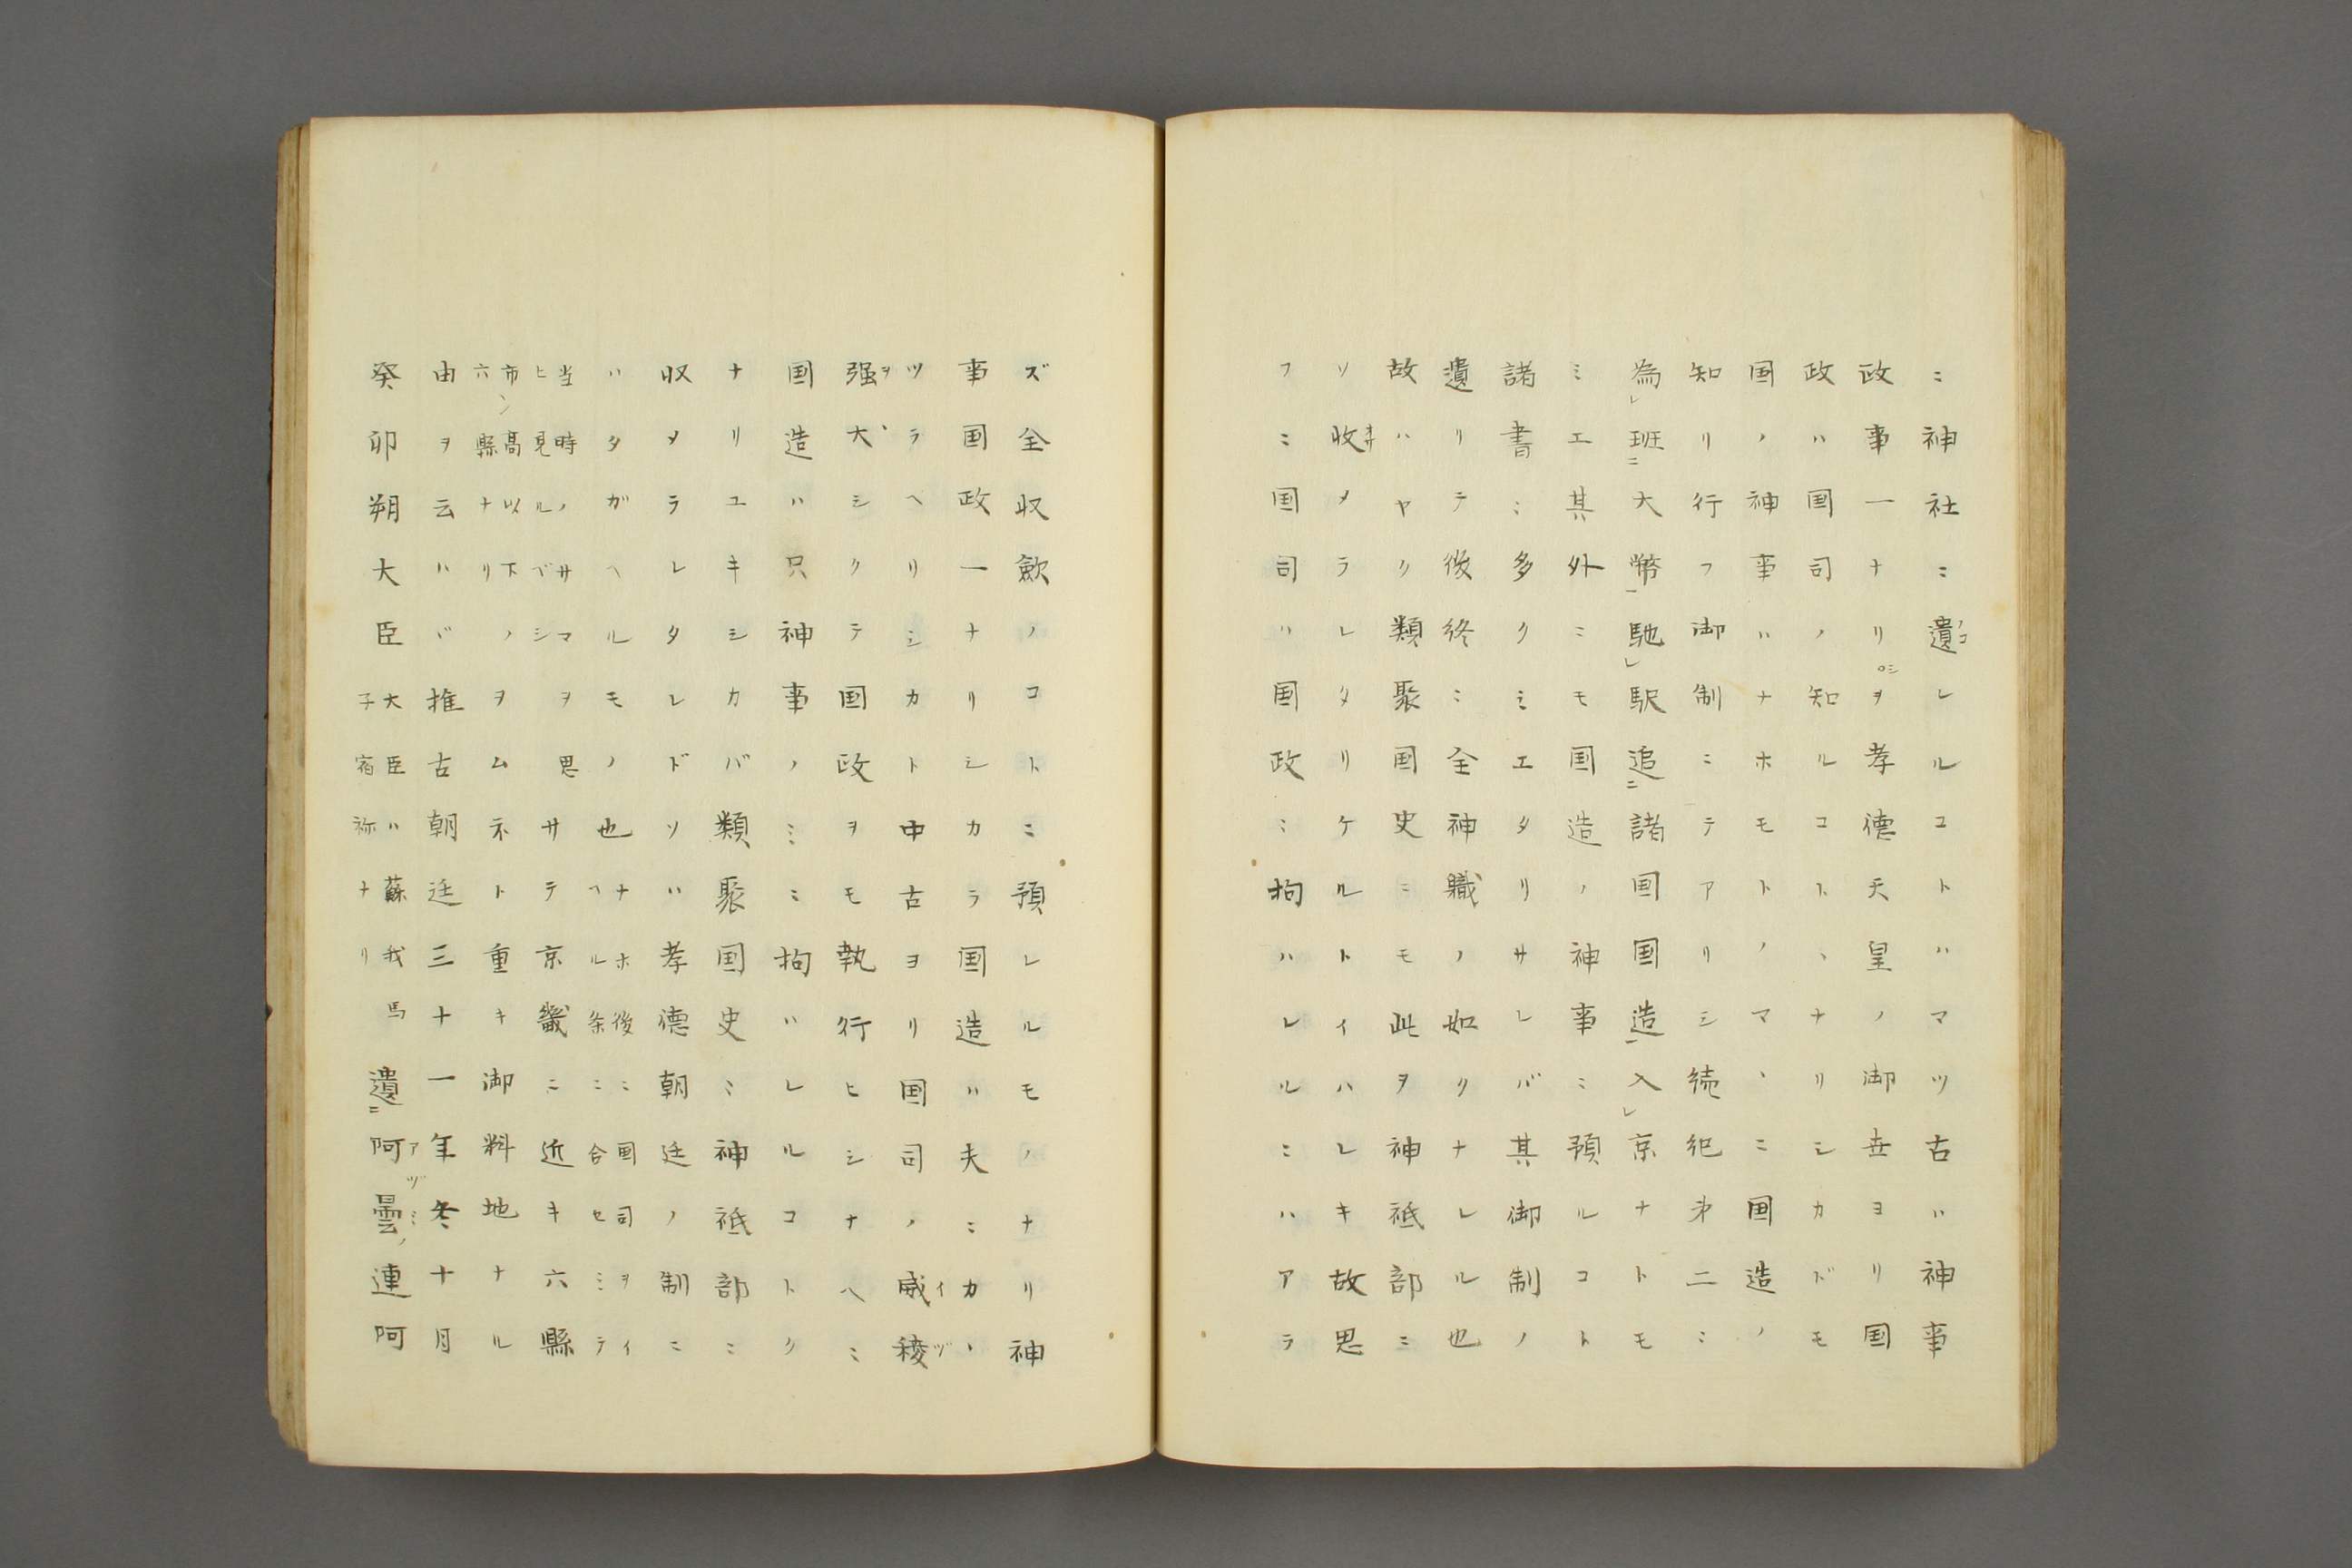 ニ神社ニ遺レルコトハマツ古ハ神事
政事一ナリシヲ孝德天皇ノ御世ヨリ国
政ハ国司ノ知ルコトヽナリシカドモ
国ノ神事ハナホモトノマヽニ国造ノ
知リ行フ御制ミテアリシ続紀第二ミ
為レ班ニ大幣一馳レ駅追ニ諸国国造一入レ京ナトモ
ミエ其外ニモ国造ノ神事ミ預ルコト
諸書ミ多クミエタリサレバ其御制ノ
遺リテ後終ミ全神職ノ如クナレル也
故ハヤク類聚国史ニモ此ヲ神祇部ミ
ソ收メラレタリケルトイハレキ故思
フニ国司ハ国政ミ拘ハレルニハアラ
ズ全収歛ノコトニ預レルモノナリ神
事国政一ナリシカラ国造ハ夫ニカヽ
ツラヘリシカト中古ヨリ国司ノ威稜
强大シクテ国政ヲモ執行ヒシナヘミ
国造ハ只神事ノミミ拘ハレルコトク
ナリユキシカバ類聚国史ミ神祇部ミ
収メラレタレドソハ孝德朝廷ノ制ニ
ハタガヘルモノ也ナホ後ミ国司ヲイヘル条ミ合セミテ
当時ノサマヲ思ヒ見ルベシサテ京畿ニ近キ六縣
市高以下ノ六縣ナリヲムネト重キ御料地ナル
由ヲ云ハバ推古朝廷三十一年冬十月
癸卯朔大臣大臣ハ蘇我馬子宿祢ナリ遺ニ阿曇連阿